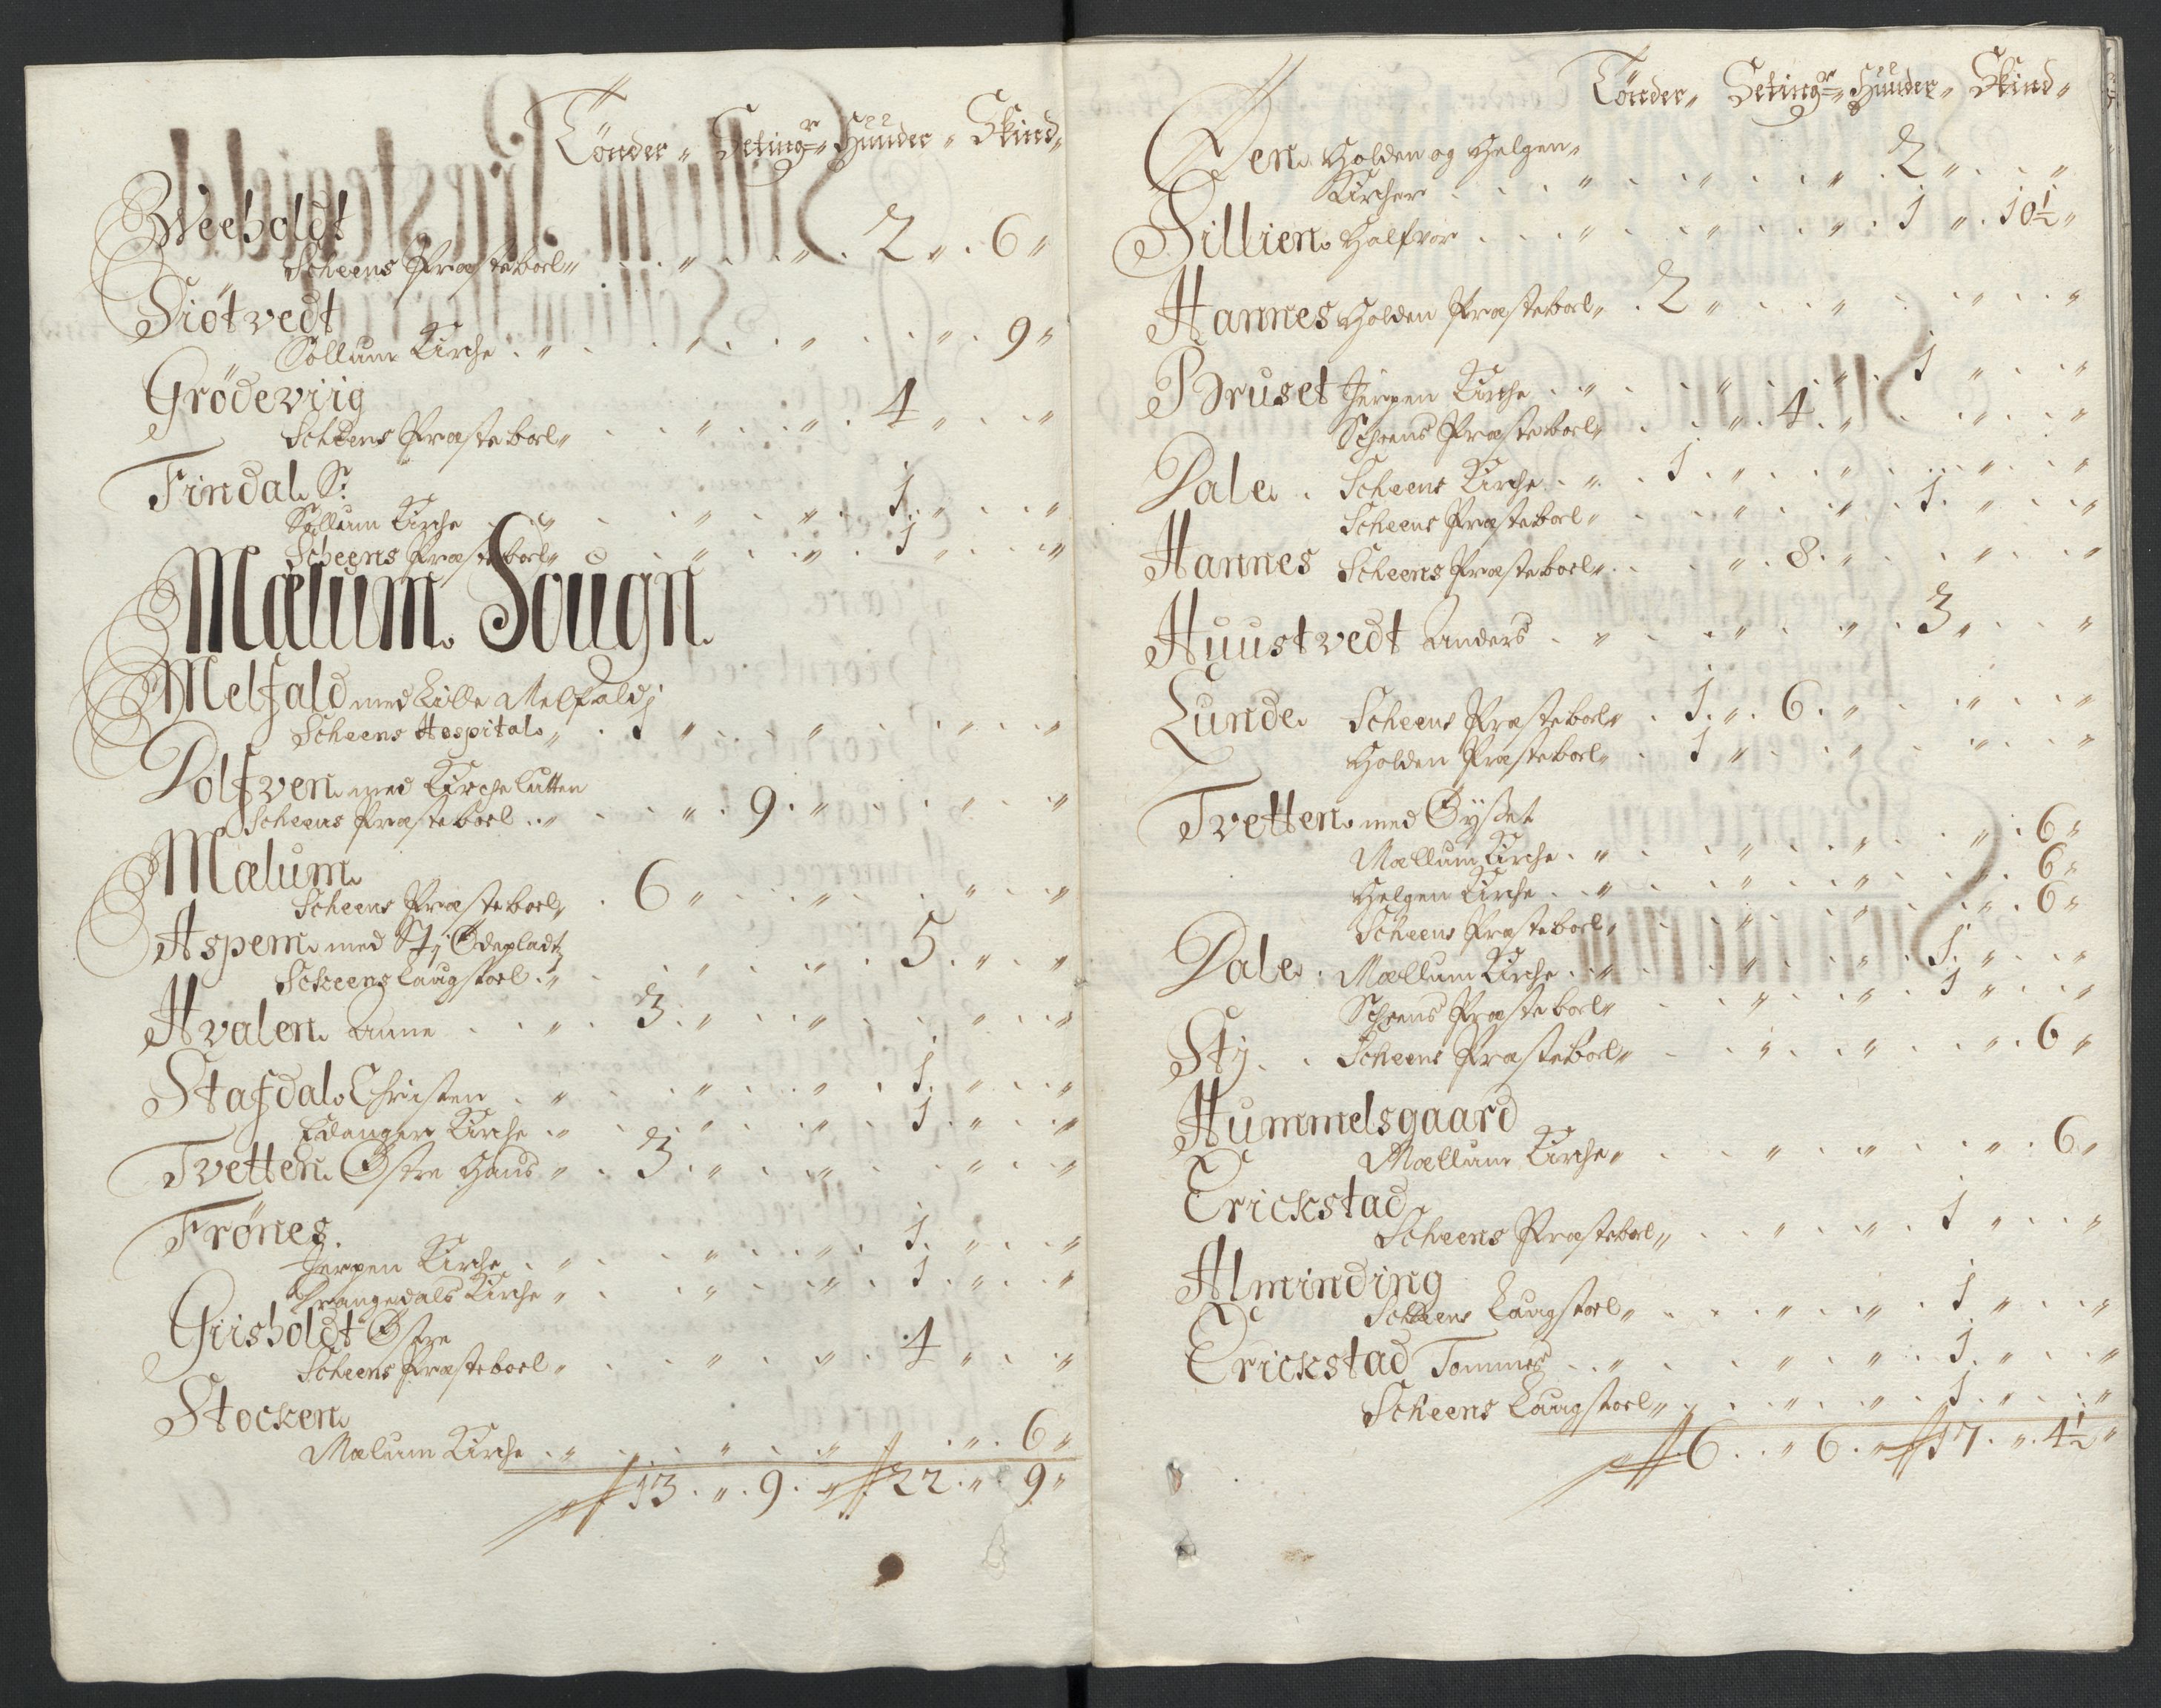 Tönder „ Setingr „ Huuder „ Skind „
Weeholdt
Scheens Præsteboel „ . . „ . . „ . 2 „ . 6 „
Siötvedt
Sollum Kirche . „ . . „ . . „ . . „ . 9 „
Grödeviig
Scheens Præsteboel „ . . „ . . „ . 4 „ . . „
Findal Sr:
Sollum Kirche . „ . . „ . . „ . 1 . „ . . „
Scheens Præsteboel „ . . „ . . „ . 1 „ . . „
Mælum Sougn
Melfald med Lille Melfald
Scheens Hospital „ . 1 „ . . „ . . „ . . „
Dolfven med Kirchelutten
Scheens Præsteboel . . „ . . „ . 9 . „ . . „ . . „
Mælum
Scheens Præsteboel „ . 6 „ . . „ . . „ . . „
Aspem med Stj Ödepladtz
Scheens Laugstoel . „ . . „ . . „ . 5 . „ . „
Hvalen Anne . . „ . 3 . „ . . „ . . „ . . „
Stafdal Christen . „ . . „ . . „ . 1 . „ . . „
Edanger Kirche . „ . . „ . . „ . 1 . „ . . „
Tvetten Östre Hans „ . 3 . „ . . „ . . „ . . „
Frönes
Jerpen Kirche . „ . . „ . . „ . 1 . „ . . „
Drangedals Kirche „ . . „ . . „ . 1 . „ . . „
Griisholdt Östre
Scheens Præsteboel „ . . „ . . „ . 4 „ . . „
Stocken
Mælum Kirche . „ . . „ . . „ . . „ . 6 „
13 . „ . 9 . „ 22 . „ 9 „
Tönder „ Setingr „ Huuder „ Skind „
Een Holden og Helgen „
Kircher . . . „ . . „ . . „ . 2 „ . . „
Sillien Halfvor . . . „ . . „ . . „ . 1 „ . 10½ „
Hannes Holden Præsteboel „ . 2 „ . . „ . . „ . . „
Bruset Jerpen Kirche . . „ . . „ . . „ . 1 „ . . „
Scheens Præsteboel „ . . „ . 4 . „ . . „ . . „
Dale . Scheens Kirche . „ . 1 . „ . . „ . . „ . . „
Scheens Præsteboel „ . . „ . . „ . 1 . „ . . „
Hannes Scheens Præsteboel „ . . „ . 8 . „ . . „ . . „
Huustvedt Anders . „ . . „ . . „ . 3 „ . . „
Lunde Scheens Præsteboel „ . 1 . „ . 6 . „ . . „ . . „
Holden Præsteboel „ . 1 „ . . „ . . „ . . „
Tvetten med Öyset
Mællum Kirche . „ . . „ . . „ . . „ . 6 „
Helgen Kirche . . „ . . „ . . „ . . „ . 6 „
Scheens Præsteboel „ . . „ . . „ . . „ . 6 „
Dale . Mællum Kirche . „ . . „ . . „ . 1 . „ . . „
Scheens Præsteboel „ . . „ . . „ . 1 „ . . „
Stj . . Scheens Præsteboel „ . . „ . . „ . . „ . 6 „
Hummelsgaard
Mællum Kirche „ . . „ . . „ . . „ . 6 „
Erickstad
Scheens Præsteboel „ . . „ . . „ . 1 „ . . „
Alminding
Scheens Laugstoel „ . . „ . . „ . 1 „ . . „
Erickstad Tommes . . „ . . „ . „ . 1 . „ . . „
Scheens Laugstoel „ . . „ . „ . 1 . „ . . „
6 . . „ 6 . „ 17 . „ . 4½ „